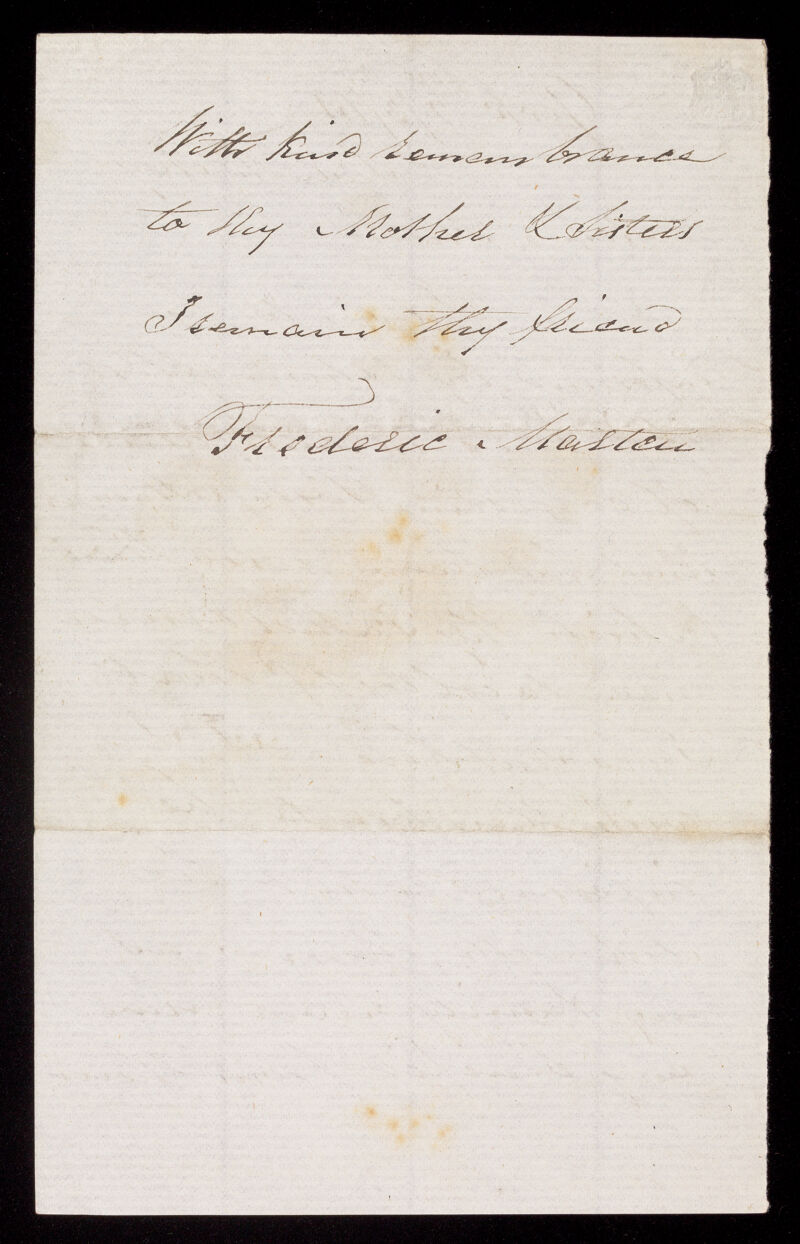 With kind remembrance
to thy Mother & Sisters
I remain thy friend
Frederic Marten